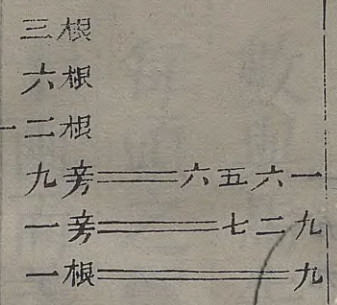 三根
六根
一二根
九㫄══六五六一
一㫄══七二九
一根══九